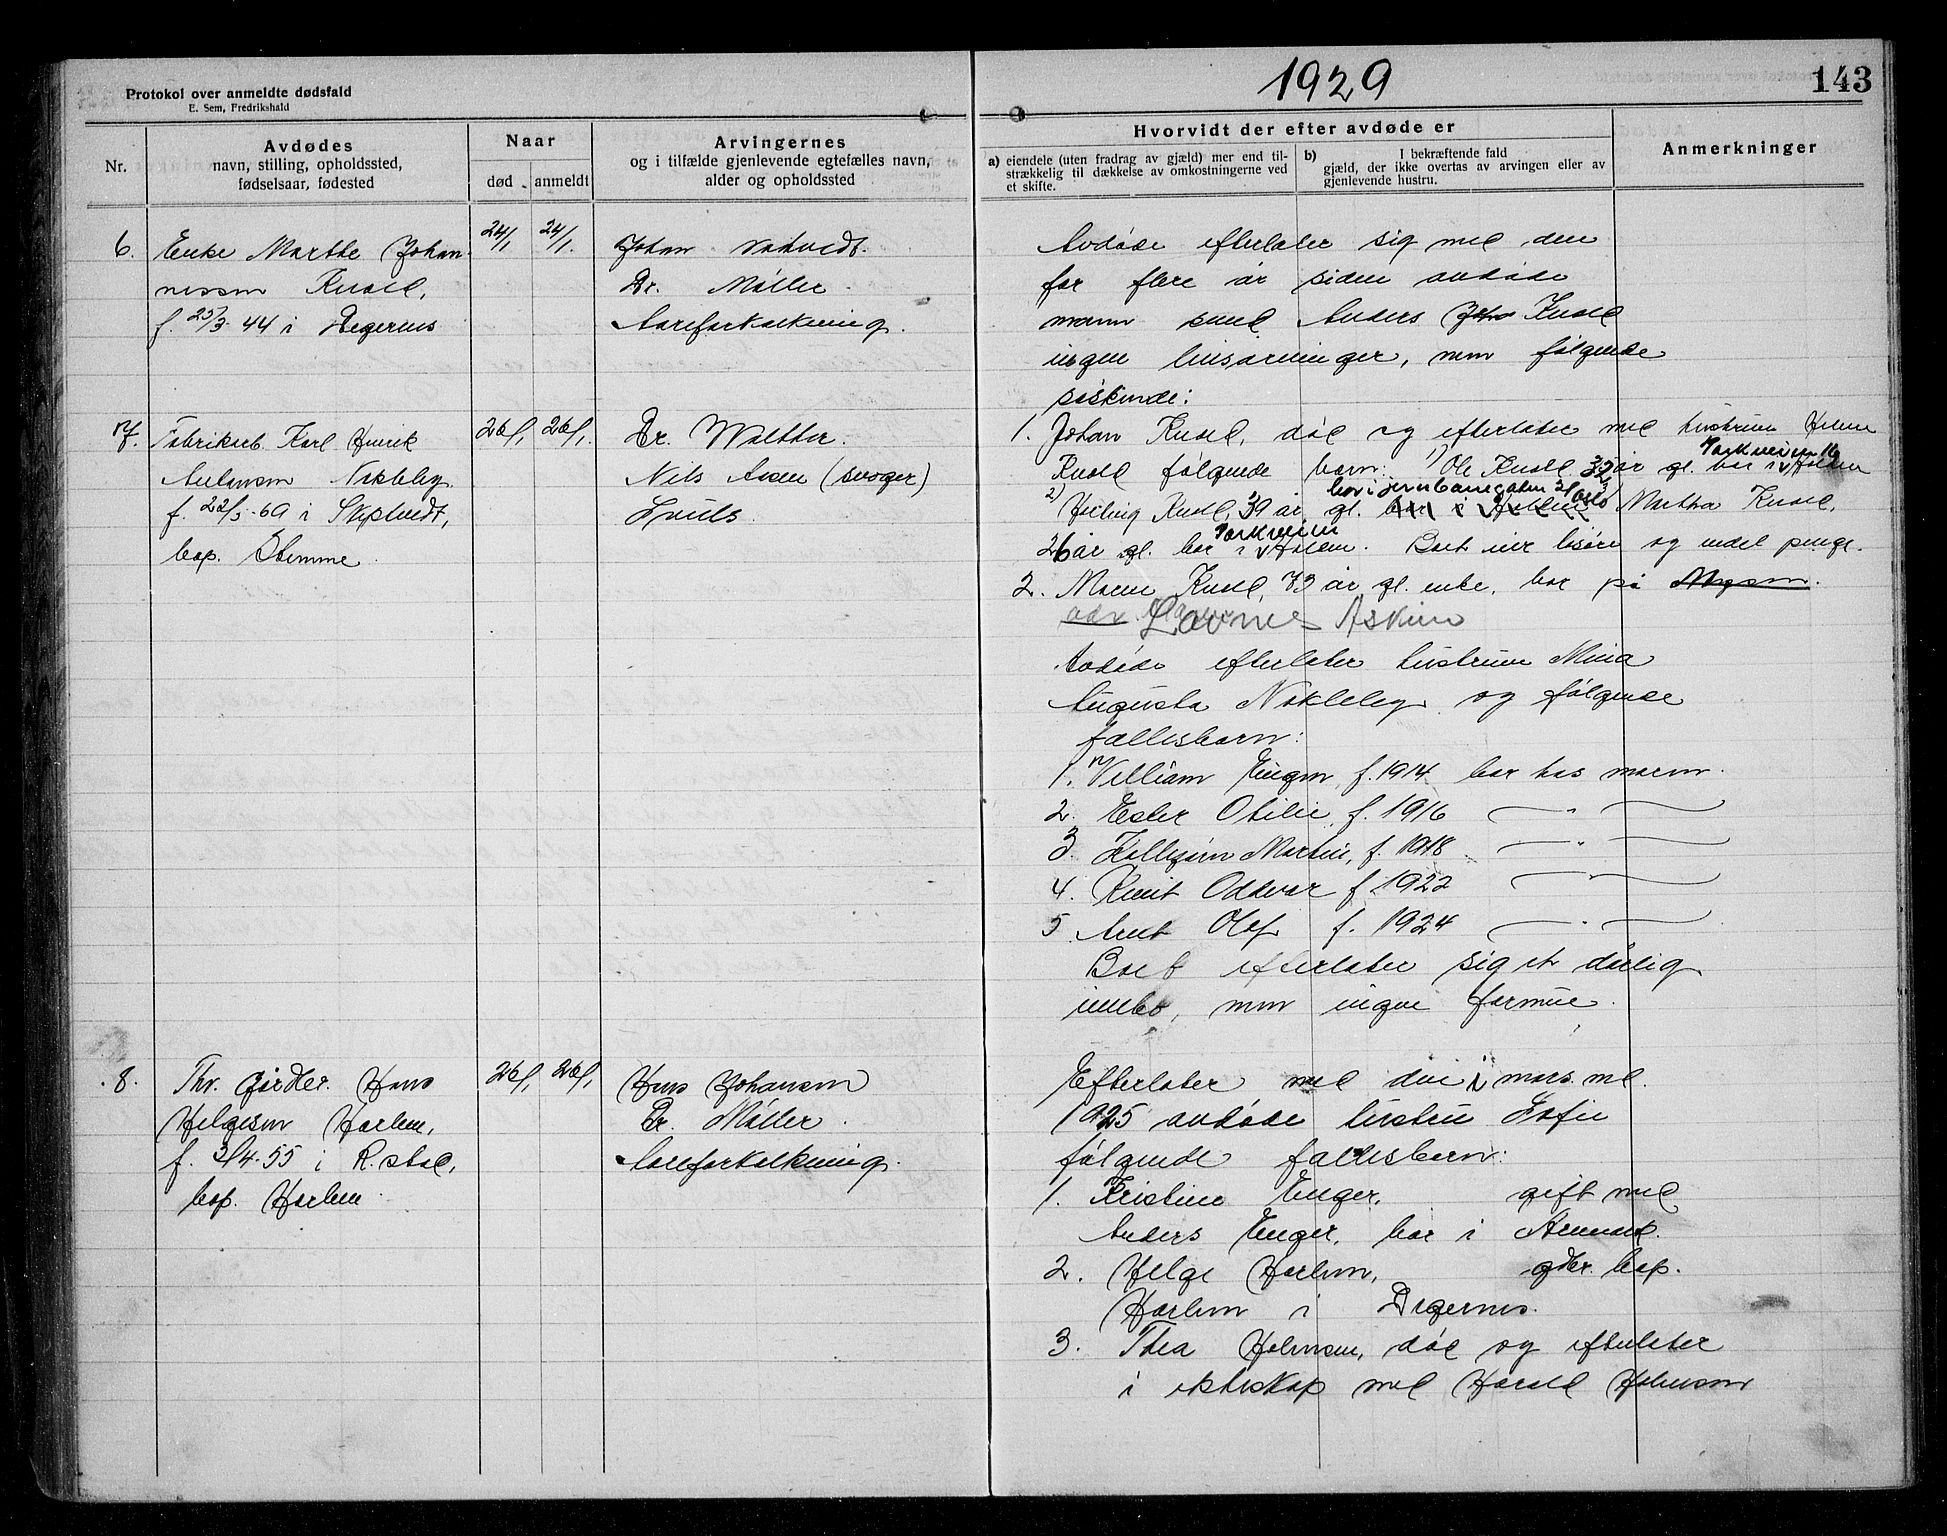 1929
143
Protokol over anmeldte dødsfald
E. Sem, Fredrikshald
Nr.
Avdødes
navn, stilling, opholdssted,
fødselsaar, fødested
Naar
død
anmeldt
Arvingernes
og i tilfælde gjenlevende egtefælles navn,
alder og opholdssted
Hvorvidt der efter avdøde er
a) eiendele (uten fradrag av gjæld) mer end til-
strækkelig til dækkelse av omkostningerne ved
et skifte.
b) I bekræftende fald
gjæld, der ikke overtas av arvingen eller av
gjenlevende hustru.
Anmerkninger
6.
Enke Marthe Johan-
nessen Knoll,
f. 25/3 44 i Degernes
24/1
24/1.
Johan
Dr. Møller.
Aareforkalkning.
Avdøde efterlater sig med den
for flere år siden avdøde
mann Anders Knoll
ingen livsarvinger, men følgende
søskende:
1. Johan Knoll, død og efterlater med hustruen Helene
Parkveien 16
Knoll følgende barn: 1) Ole Knoll 32 år gl. bor i Halden
bor i jernbanegaten 21 Oslo
2) Hilling Knoll, 39 år gl. bor i Halden Martha Knoll,
Parkveien
26 år gl. bor i Halden. Boet eier løsøre og endel penge.
2. Maren Knoll, 73 år gl. enke, bor på Mysen.
adr. Askim
7.
Fabrikarb. Karl Henrik
Antonsen Nakleby
f. 22/5-69 i Skiptvedt,
bop. Stemme.
26/1
26/1.
Dr. Walther.
Nils Aasen (svoger)
Avdøde efterlater hustruen Mina
Augusta Nakleby og følgende
fællesbarn:
1. William Eugen, f. 1914 bor hos moren.
2. Ester Otilie, f. 1916 — " —
3. Kolbjørn Martin, f. 1918 — " —
4. Knut Oddvar f. 1922 — " —
5. Arnt Olaf f. 1924 — " —
Boet efterlater sig et dårlig
innbo, men ingen formue.
8.
Fhv. gårdbr. Hans
Helgesen Harlem,
f. 3/4-55 i R.stad,
bop. Harlem.
26/1
26/1
Hans Johansen
Dr. Møller.
Aareforkalkning.
Efterlater med den i mars md.
1925 avdøde hustru Sofie
følgende fællesbarn:
1. Kristine Enger, gift med
Anders Enger, bor i Aremark.
2. Helge Harlem, gdbr. bop.
Harlem i Degernes.
3. Thea Holmsen, død og efterlater
i ekteskap med Harald Holmsen